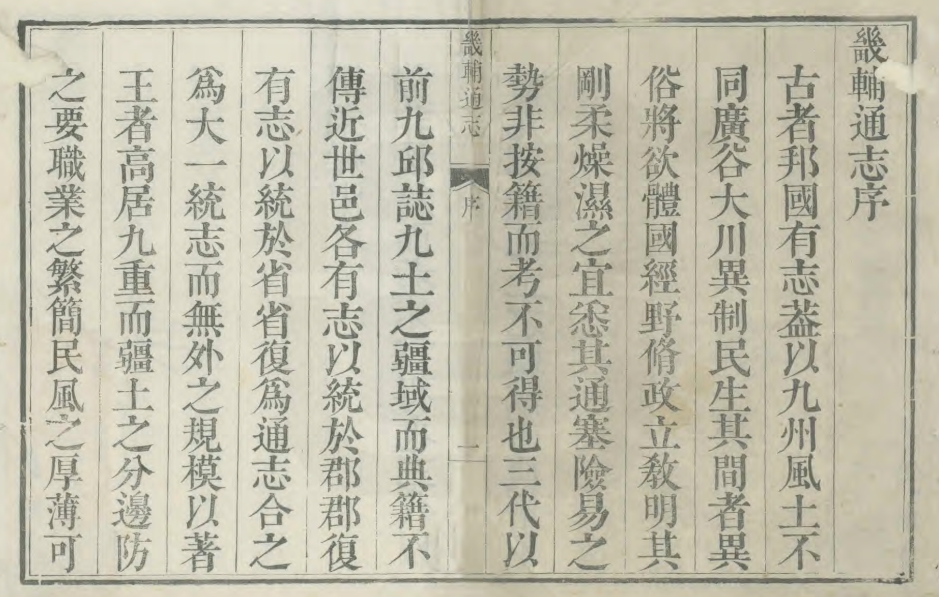 畿輔通志序
古者邦國有志葢以九州風土不
同廣谷大川異制民生其間者異
俗將欲體國經野脩政立教明其
剛柔燥濕之宜悉其通塞險易之
勢非按籍而考不可得也三代以
畿輔通志
序
一
前九邱誌九土之疆域而典籍不
傳近世邑各有志以統於郡郡復
有志以統於省省復爲通志合之
爲大一統志而無外之規模以著
王者高居九重而疆土之分邊防
之要職業之繁簡民風之厚薄可